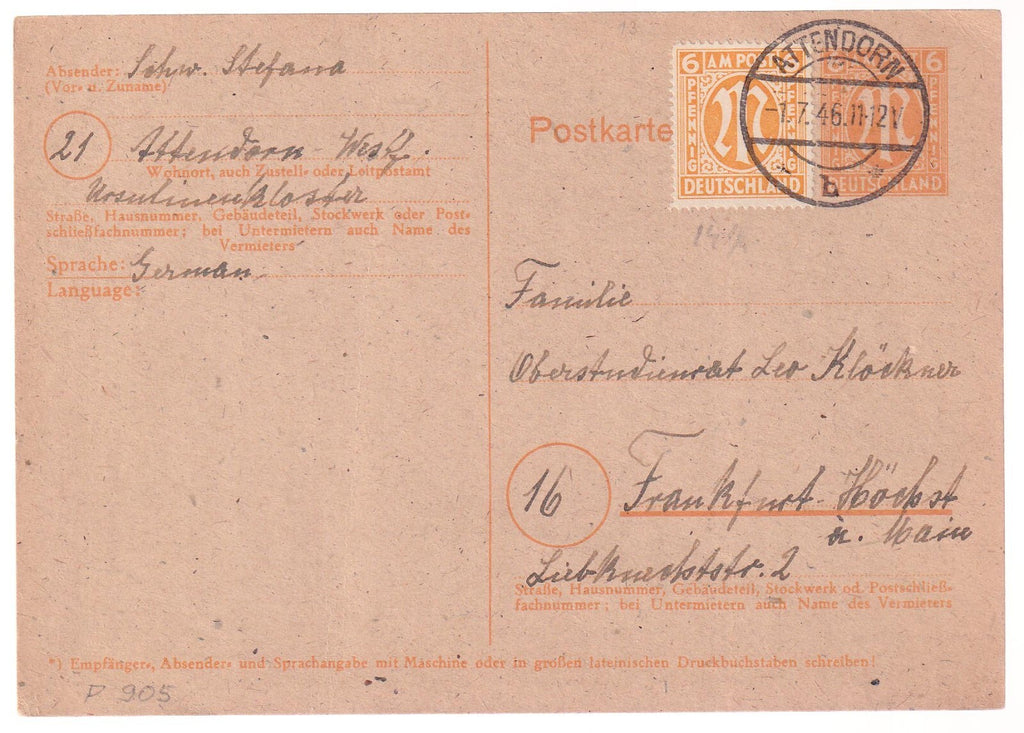 Absender: Schw. Stefana
(Vor- u. Zuname)
21 Attendorn Westf.
Wohnort, auch Zustell- oder Leitpostamt
Ursulinenkloster
Straße, Hausnummer, Gebäudeteil, Stockwerk oder Post-
schließfachnummer; bei Untermietern auch Name des
Vermieters
Sprache: German
Language:
13
Postkarte
6 AM POST
PFENNIG PFENNIG
DEUTSCHLAND
ATTENDORN
-1.7.46.11-12V
b
6
PFENNIG
DEUTSCHLAND
Familie
Oberstudienrat Leo Klöckner
16 Frankfurt-Höchst
a. Main
Liebknechtstr. 2
Straße, Hausnummer, Gebäudeteil, Stockwerk od. Postschließ-
fachnummer; bei Untermietern auch Name des Vermieters
*) Empfänger-, Absender- und Sprachangabe mit Maschine oder in großen lateinischen Druckbuchstaben schreiben!
P 905